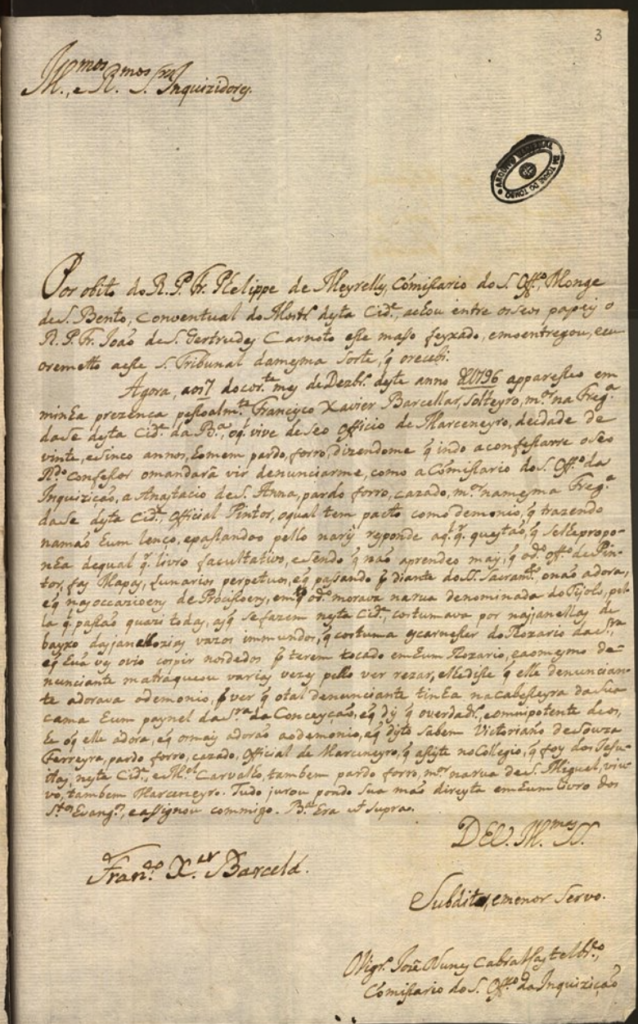 3
M.mos e R.mos S.res Inquizidores.
ARQUIVO NACIONAL DA TORRE DO TOMBO
Por obito do R. P. Fr. Phelippe de Meyrelles, Comissario do S. Off.o, Monge
de S. Bento, Conventual do Mostr.o desta Cid.e, achou entre os seos papeis o
R. P. Fr. João de S. Gertrudes Carnoto este maso feyxado, e mo entregou, e eu
o remetto a esse S. Tribunal da mesma sorte, q o recebi.
Agora, aos 7 do cor.te mes de Dezbr.o deste anno de 1796 appareseo em
minha prezença pesoalm.te Francisco Xavier Barcellar, solteyro, m.or na Freg.a
da Se desta Cid.e da B.a, oq vive de seo officio de Marceneyro, de idade de
vinte, e sinco annos, homem pardo, forro, dizendome q indo a confessarse o seo
R.do Confessor o mandara vir denunciarme, como a Comissario do S. Off.o da
Inquizição, a Anastacio de S. Anna, pardo forro, cazado, m.or na mesma Freg.a
da Se desta Cid.e, Official Pintor, o qual tem pacto com o demonio, q trazendo
na mão hum lenço, e pasando o pello naris responde a q.q. questão, q se lhe propo-
nha de qual q. livro facultativo, e sendo q não aprendeo mais, q od.o off.o de Pin-
tor, fas Mapas, lunarios perpetuos, e q pasando p diante do S. Sacram.to o não adora,
e q nas occazioens de Procisoens, em q od.o morava na rua denominada do Tijolo, pe-
la q pasão quazi todas, as q se fazem nesta Cid.e, costumava por nas janellas de
bayxo das janellas vazos immundos, q costuma escarneser do Rozario da S.ra
e q hua ves o vio cospir nos dedos p terem tocado em hum Rozario, e ao mesmo de-
nunciante matraqueou varias vezes pello ver rezar, e lhe dise q elle denuncian-
te adorava o demonio, p ver q o tal denunciante tinha na cabeseyra da sua
cama hum paynel da S.ra da Conceyção, e q dis q o verdad.o, e omnipotente deos,
he o q elle adora, e q o mais adorar ao demonio, e q disto sabem Victoriano de Souza
Ferreyra, pardo forro, cazado, Official de Marceneyro, q asiste no Collegio, q foy dos Jesui-
tas, nesta Cid.e, e M.el Carvalho, tambem pardo forro, m.or na rua de S. Miguel, viu-
vo, tambem Marceneyro. Tudo jurou pondo sua mão direyta em hum livro dos
S.tos Evang.os, e assignou commigo. B.a Era ut supra.
DE V. M.mas SS.
Fran.co X.er Barcelár.
Subdito, e menor Servo.
Jozé Nunes Cabral Castelbr.co
Comisario do S. Off.o da Inquizição